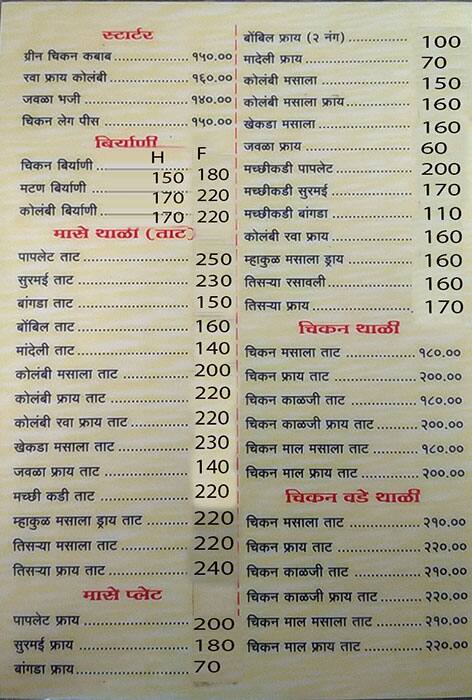 स्टार्टर
ग्रीन चिकन कबाब .................. १५०.००
रवा फ्राय कोलंबी .................. १६०.००
जवळा भजी .................. १४०.००
चिकन लेग पीस .................. १५०.००
बिर्याणी
H F
चिकन बिर्याणी .................. 150 180
मटण बिर्याणी .................. 170 220
कोलंबी बिर्याणी .................. 170 220
मासे थाळी (ताट)
पापलेट ताट .................. 250
सुरमई ताट .................. 230
बांगडा ताट .................. 150
बोंबिल ताट .................. 160
मांदेली ताट .................. 140
कोलंबी मसाला ताट .................. 200
कोलंबी फ्राय ताट .................. 220
कोलंबी रवा फ्राय ताट .................. 220
खेकडा मसाला ताट .................. 230
जवळा फ्राय ताट .................. 140
मच्छी कडी ताट .................. 220
म्हाकुळ मसाला ड्राय ताट .................. 220
तिसऱ्या मसाला ताट .................. 220
तिसऱ्या फ्राय ताट .................. 240
मासे प्लेट
पापलेट फ्राय .................. 200
सुरमई फ्राय .................. 180
बांगडा फ्राय .................. 70
बोंबिल फ्राय (२ नंग) .................. 100
मादेली फ्राय .................. 70
कोलंबी मसाला .................. 150
कोलंबी मसाला फ्राय .................. 160
खेकडा मसाला .................. 160
जवळा फ्राय .................. 60
मच्छीकडी पापलेट .................. 200
मच्छीकडी सुरमई .................. 170
मच्छीकडी बांगडा .................. 110
कोलंबी रवा फ्राय .................. 160
म्हाकुळ मसाला ड्राय .................. 160
तिसऱ्या रसावली .................. 160
तिसऱ्या फ्राय .................. 170
चिकन थाळी
चिकन मसाला ताट .................. १८०.००
चिकन फ्राय ताट .................. २००.००
चिकन काळजी ताट .................. १८०.००
चिकन काळजी फ्राय ताट .................. २००.००
चिकन माल मसाला ताट .................. १८०.००
चिकन माल फ्राय ताट .................. २००.००
चिकन वडे थाळी
चिकन मसाला ताट .................. २१०.००
चिकन फ्राय ताट .................. २२०.००
चिकन काळजी ताट .................. २१०.००
चिकन काळजी फ्राय ताट .................. २२०.००
चिकन माल मसाला ताट .................. २१०.००
चिकन माल फ्राय ताट .................. २२०.००